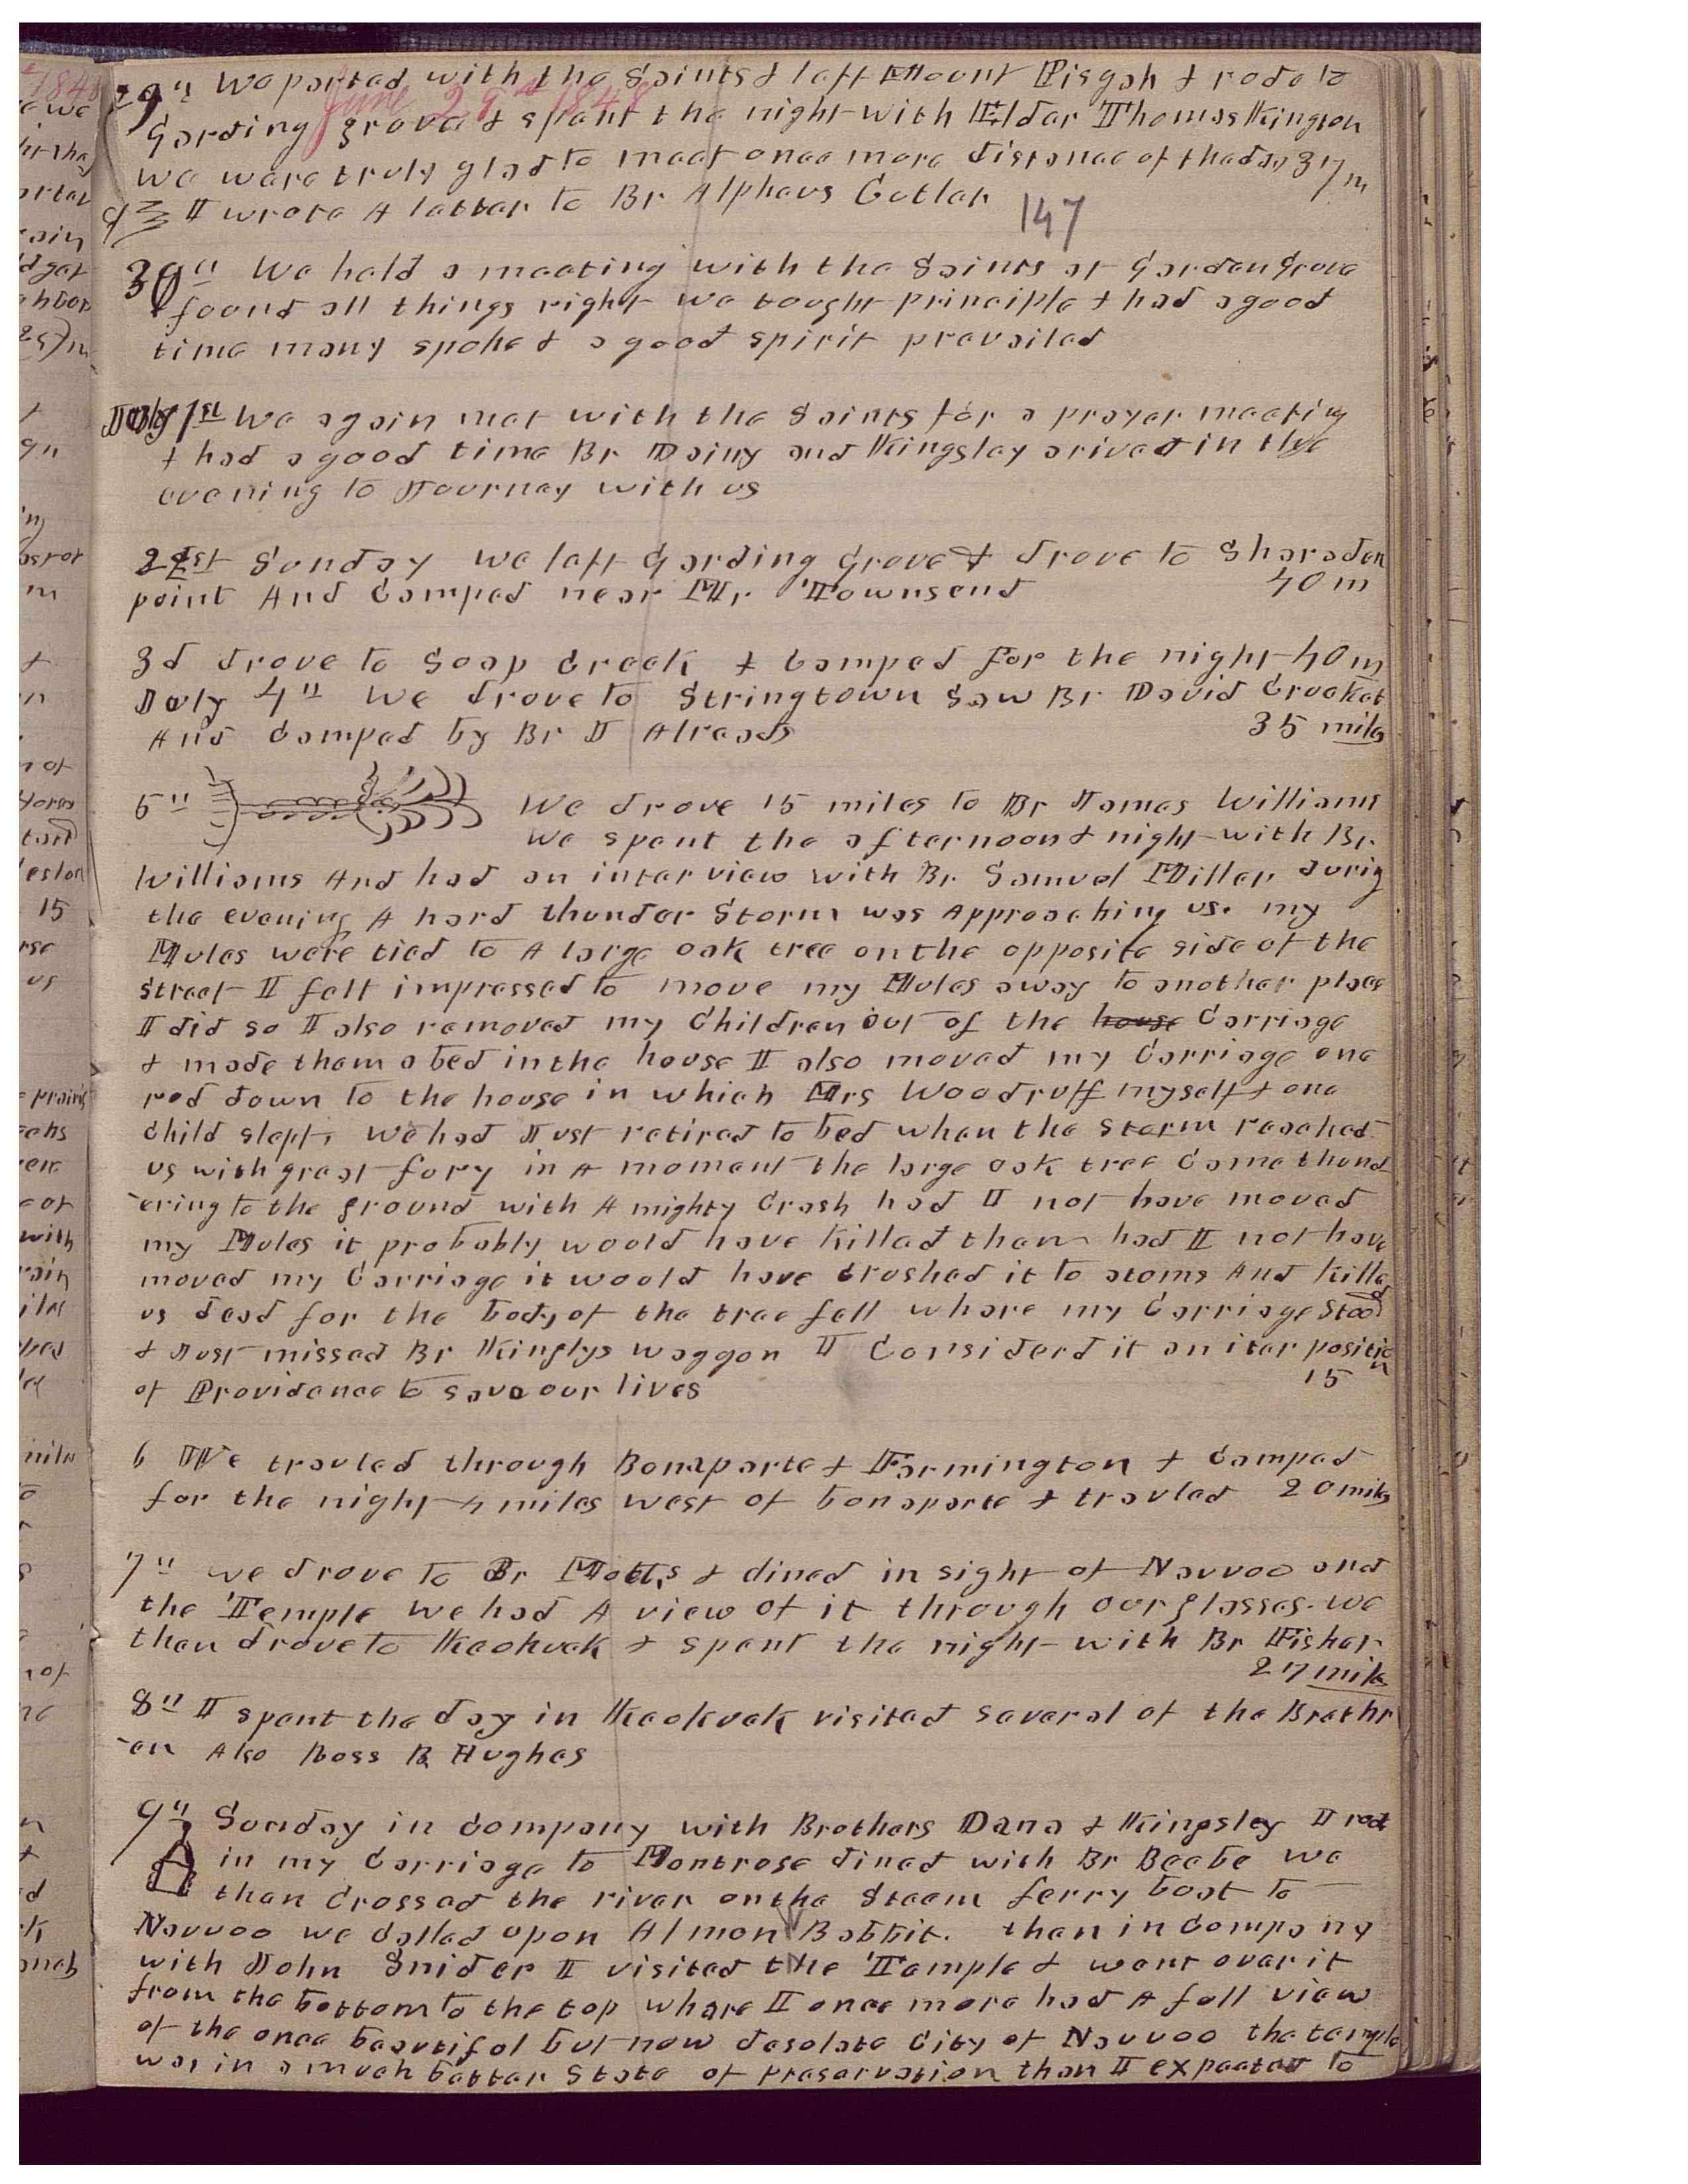 June 29th 1848
29" We parted with the Saints & left Mount Pisgah & rode to
Garding grove & spent the night with Elder Thomas Kington
we were truly glad to meet once more distance of the day 37 m
I wrote A letter to Br Alpheus Cutler
147
30" We held a meeting with the Saints at Garden Grove
& found all things right we tought principle & had a good
time many spoke & a good spirit prevailed
July 1st We again met with the Saints for a prayer meeting
& had a good time Br Dainy and Kingsley arived in the
evening to Journey with us
2d Sunday we left Garding Grove & drove to Sharaden
point And Camped near Mr Townsend 40 m
3d drove to Soap Creek & Camped for the night 40 m
July 4" We drove to Stringtown Saw Br David Crocket
And Camped by Br J Alreads 35 miles
5" We drove 15 miles to Br James Williams
we spent the afternoon & night with Br.
Williams And had an interview with Br. Samuel Miller, durig
the evening A hard thunder Storm was Approaching us. my
Mules were tied to A large oak tree on the opposite side of the
street I felt impressed to move my Mules away to another place
I did so I also removed my Children out of the house Carriage
& made them a bed in the house I also moved my Carriage one
rod down to the house in which Mrs Woodruff myself & one
Child slept, We had Just retired to bed when the storm reached
us with great fury in A moment the large oak tree Came thund
-ering to the ground with A mighty Crash had I not have moved
my Mules it probably would have killed them had I not have
moved my Carriage it would have crushed it to atoms And killed
us dead for the body of the tree fell whare my Carriage Stood
& Just missed Br Kinglys waggon I Considerd it an iterposition
of Providence to save our lives 15
6 We travled through Bonaparte & Farmington & Camped
for the night 4 miles west of bonaparte & travled 20 miles
7" we drove to Br Motts & dined in sight of Nauvoo and
the Temple we had A view of it through our glasses. we
then drove to Keokuck & spent the night with Br Fisher
27 miles
8" I spent the day in Keokuck visited several of the Brethr
-en Also Ross R Hughes
9" Sunday in company with Brothers Dana & Kingsley I rode
in my Carriage to Montrose dined with Br Beebe we
than Crossed the river on the Steem ferry boat to
Nauvoo we Called upon Almon Babbit. than in Company
with John Snider I visited the Temple & went over it
from the bottom to the top whare I once more had A full view
of the once beautiful but now desolate City of Nauvoo the temple
was in a much better State of preservation than I expected to